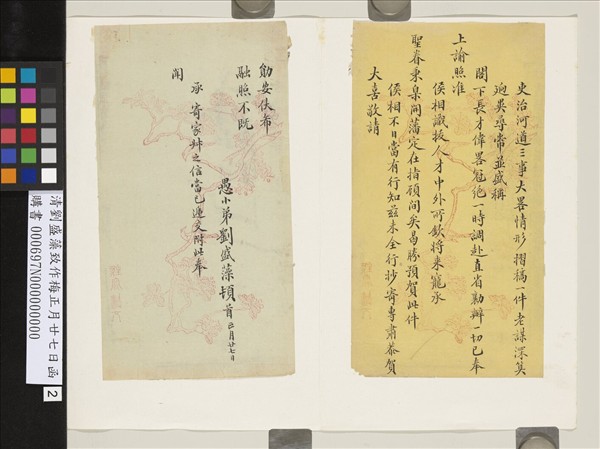 吏治河道三事大畧情形摺稿一件老謀深算
迥異尋常並盛稱
閣下長才偉畧冠絕一時調赴直省勷辦一切已奉
上諭照准
侯相識拔人才中外所欽將來寵承
聖眷秉臬開藩定在指顧間矣曷勝預賀此件
侯相不日當有行知茲未全行抄寄專肅恭賀
大喜敬請
勛安伏希
融照不既
愚小弟劉盛藻頓首正月廿七日
承寄家姊之信當已遞交附此奉
聞
清劉盛藻致作梅正月廿七日函
購書 000697N000000000
2